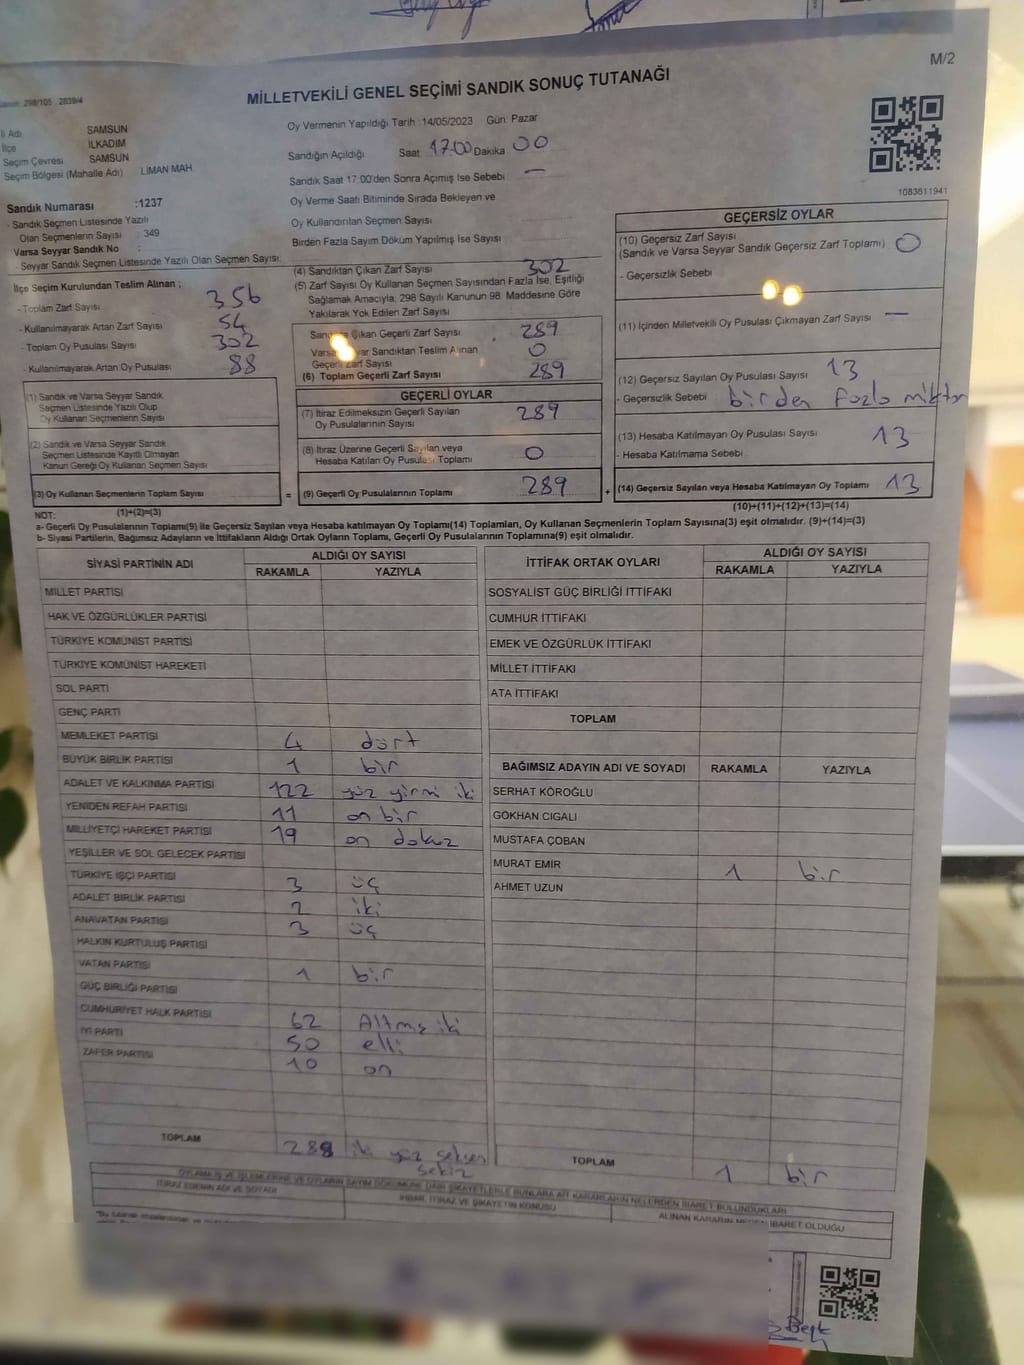 M/2
MİLLETVEKİLİ GENEL SEÇİMİ SANDIK SONUÇ TUTANAĞI
298/105 2839/4
İl Adı SAMSUN
İlçe İLKADIM
Seçim Çevresi SAMSUN
Seçim Bölgesi (Mahalle Adı) LİMAN MAH
Oy Vermenin Yapıldığı Tarih : 14/05/2023 Gün: Pazar
Sandığın Açıldığı Saat 17.00 Dakika 00
Sandık Saat 17:00'den Sonra Açımış İse Sebebi —
Oy Verme Saati Bitiminde Sırada Bekleyen ve
Oy Kullandırılan Seçmen Sayısı
Birden Fazla Sayım Döküm Yapılmış İse Sayısı
1083611941
Sandık Numarası :1237
- Sandık Seçmen Listesinde Yazılı
Olan Seçmenlerin Sayısı : 349
Varsa Seyyar Sandık No :
- Seyyar Sandık Seçmen Listesinde Yazılı Olan Seçmen Sayısı:
İlçe Seçim Kurulundan Teslim Alınan ;
- Toplam Zarf Sayısı 356
- Kullanılmayarak Artan Zarf Sayısı 54
- Toplam Oy Pusulası Sayısı 302
- Kullanılmayarak Artan Oy Pusulası 88
(1) Sandık ve Varsa Seyyar Sandık
Seçmen Listesinde Yazılı Olup
Oy Kullanan Seçmenlerin Sayısı
(2) Sandık ve Varsa Seyyar Sandık
Seçmen Listesinde Kayıtlı Olmayan
Kanun Gereği Oy Kullanan Seçmen Sayısı
(3) Oy Kullanan Seçmenlerin Toplam Sayısı
(1)+(2)=(3)
(4) Sandıktan Çıkan Zarf Sayısı 302
(5) Zarf Sayısı Oy Kullanan Seçmen Sayısından Fazla İse, Eşitliği
Sağlamak Amacıyla, 298 Sayılı Kanunun 98. Maddesine Göre
Yakılarak Yok Edilen Zarf Sayısı
Çıkan Geçerli Zarf Sayısı 289
Sandıktan Teslim Alınan
Zarf Sayısı 0
(6) Toplam Geçerli Zarf Sayısı 289
GEÇERLİ OYLAR
(7) İtiraz Edilmeksizin Geçerli Sayılan
Oy Pusulalarının Sayısı 289
(8) İtiraz Üzerine Geçerli Sayılan veya
Hesaba Katılan Oy Pusulası Toplamı 0
= (9) Geçerli Oy Pusulalarının Toplamı 289
GEÇERSİZ OYLAR
(10) Geçersiz Zarf Sayısı
(Sandık ve Varsa Seyyar Sandık Geçersiz Zarf Toplamı) 0
- Geçersizlik Sebebi
(11) İçinden Milletvekili Oy Pusulası Çıkmayan Zarf Sayısı —
(12) Geçersiz Sayılan Oy Pusulası Sayısı 13
- Geçersizlik Sebebi birden fazla
(13) Hesaba Katılmayan Oy Pusulası Sayısı 13
- Hesaba Katılmama Sebebi
+ (14) Geçersiz Sayılan veya Hesaba Katılmayan Oy Toplamı 13
(10)+(11)+(12)+(13)=(14)
NOT:
a- Geçerli Oy Pusulalarının Toplamı(9) ile Geçersiz Sayılan veya Hesaba katılmayan Oy Toplamı(14) Toplamları, Oy Kullanan Seçmenlerin Toplam Sayısına(3) eşit olmalıdır. (9)+(14)=(3)
b- Siyasi Partilerin, Bağımsız Adayların ve İttifakların Aldığı Ortak Oyların Toplamı, Geçerli Oy Pusulalarının Toplamına(9) eşit olmalıdır.
SİYASİ PARTİNİN ADI ALDIĞI OY SAYISI
RAKAMLA YAZIYLA
MİLLET PARTİSİ
HAK VE ÖZGÜRLÜKLER PARTİSİ
TÜRKİYE KOMÜNİST PARTİSİ
TÜRKİYE KOMÜNİST HAREKETİ
SOL PARTİ
GENÇ PARTİ
MEMLEKET PARTİSİ 4 dört
BÜYÜK BİRLİK PARTİSİ 1 bir
ADALET VE KALKINMA PARTİSİ 122 yüz yirmi iki
YENİDEN REFAH PARTİSİ 11 on bir
MİLLİYETÇİ HAREKET PARTİSİ 19 on dokuz
YEŞİLLER VE SOL GELECEK PARTİSİ
TÜRKİYE İŞÇİ PARTİSİ 3 üç
ADALET BİRLİK PARTİSİ 2 iki
ANAVATAN PARTİSİ 3 üç
HALKIN KURTULUŞ PARTİSİ
VATAN PARTİSİ 1 bir
GÜÇ BİRLİĞİ PARTİSİ
CUMHURİYET HALK PARTİSİ 62 Altmış iki
İYİ PARTİ 50 elli
ZAFER PARTİSİ 10 on
TOPLAM 288 iki yüz seksen
sekiz
İTTİFAK ORTAK OYLARI ALDIĞI OY SAYISI
RAKAMLA YAZIYLA
SOSYALİST GÜÇ BİRLİĞİ İTTİFAKI
CUMHUR İTTİFAKI
EMEK VE ÖZGÜRLÜK İTTİFAKI
MİLLET İTTİFAKI
ATA İTTİFAKI
TOPLAM
BAĞIMSIZ ADAYIN ADI VE SOYADI RAKAMLA YAZIYLA
SERHAT KÖROĞLU
GÖKHAN CIGALI
MUSTAFA ÇOBAN
MURAT EMİR 1 bir
AHMET UZUN
TOPLAM 1 bir
İTİRAZ EDENİN ADI VE SOYADI
İHBAR, İTİRAZ VE ŞİKAYETİN KONUSU
ALINAN KARARIN İBARET OLDUĞU